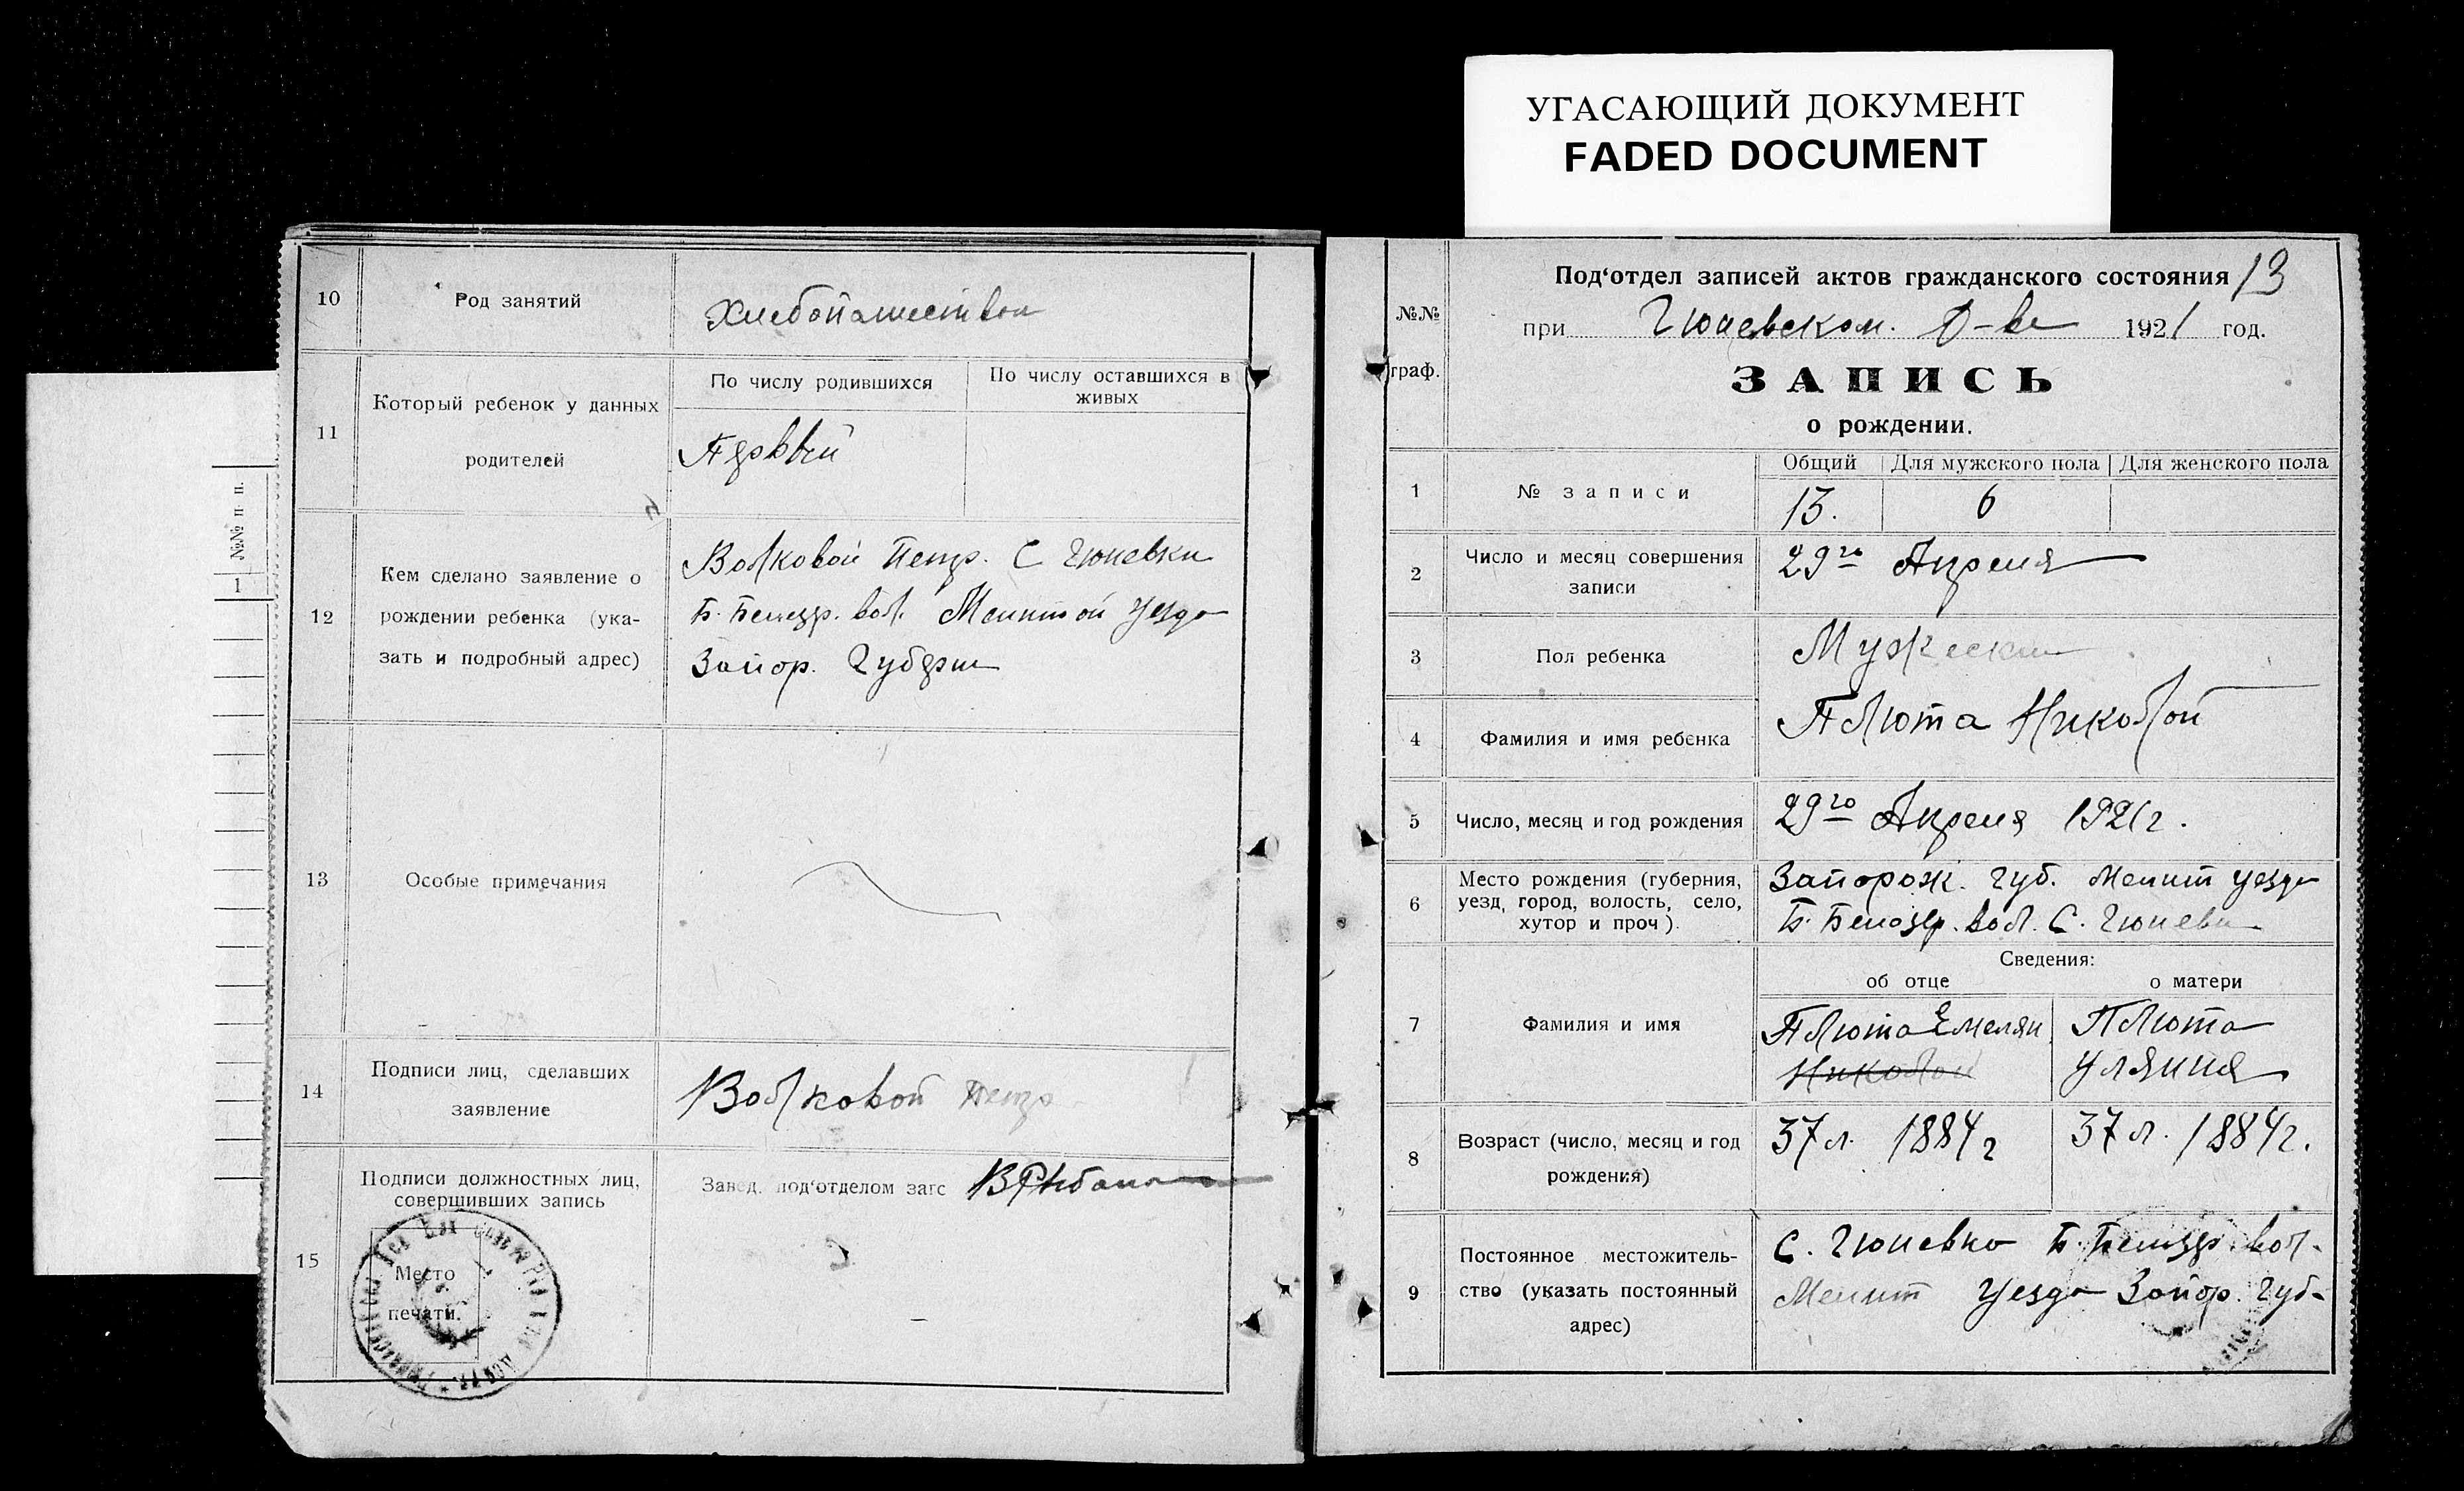 УГАСАЮЩИЙ ДОКУМЕНТ
FADED DOCUMENT
№№ п. п.
1
10 Род занятий Хлебопашество
11 Который ребенок у данных родителей
По числу родившихся По числу оставшихся в живых
Первый
12 Кем сделано заявление о рождении ребенка (указать и подробный адрес)
Волковой Петр. С Гюневки
Б. Белозер. вол. Мелит ой уезда
Запор. Губерни
13 Особые примечания
14 Подписи лиц, сделавших заявление
Волковой Петр
15 Подписи должностных лиц, совершивших запись
Завед. под‘отделом загс
Место
печати.
Под‘отдел записей актов гражданского состояния 13
№№
граф.
при Гюневском. 1921 год.
ЗАПИСЬ
о рождении.
Общий Для мужского пола Для женского пола
1 № записи 13. 6
2 Число и месяц совершения записи 29го Апреля
3 Пол ребенка Мужеский
4 Фамилия и имя ребенка Плюта Николай
5 Число, месяц и год рождения 29го Апреля 1921г.
6 Место рождения (губерния, уезд, город, волость, село, хутор и проч).
Запорож. Губ. Мелит уезда
Б. Белозер. вол. С. Гюневка
Сведения:
об отце о матери
7 Фамилия и имя
Плюта Емелян Плюта
Николай Уляния
8 Возраст (число, месяц и год рождения)
37 л. 1884 г 37 л. 1884 г.
9 Постоянное местожительство (указать постоянный адрес)
С. Гюневка Б. Белозер. вол.
Мелит Уезда Запор. Губ.